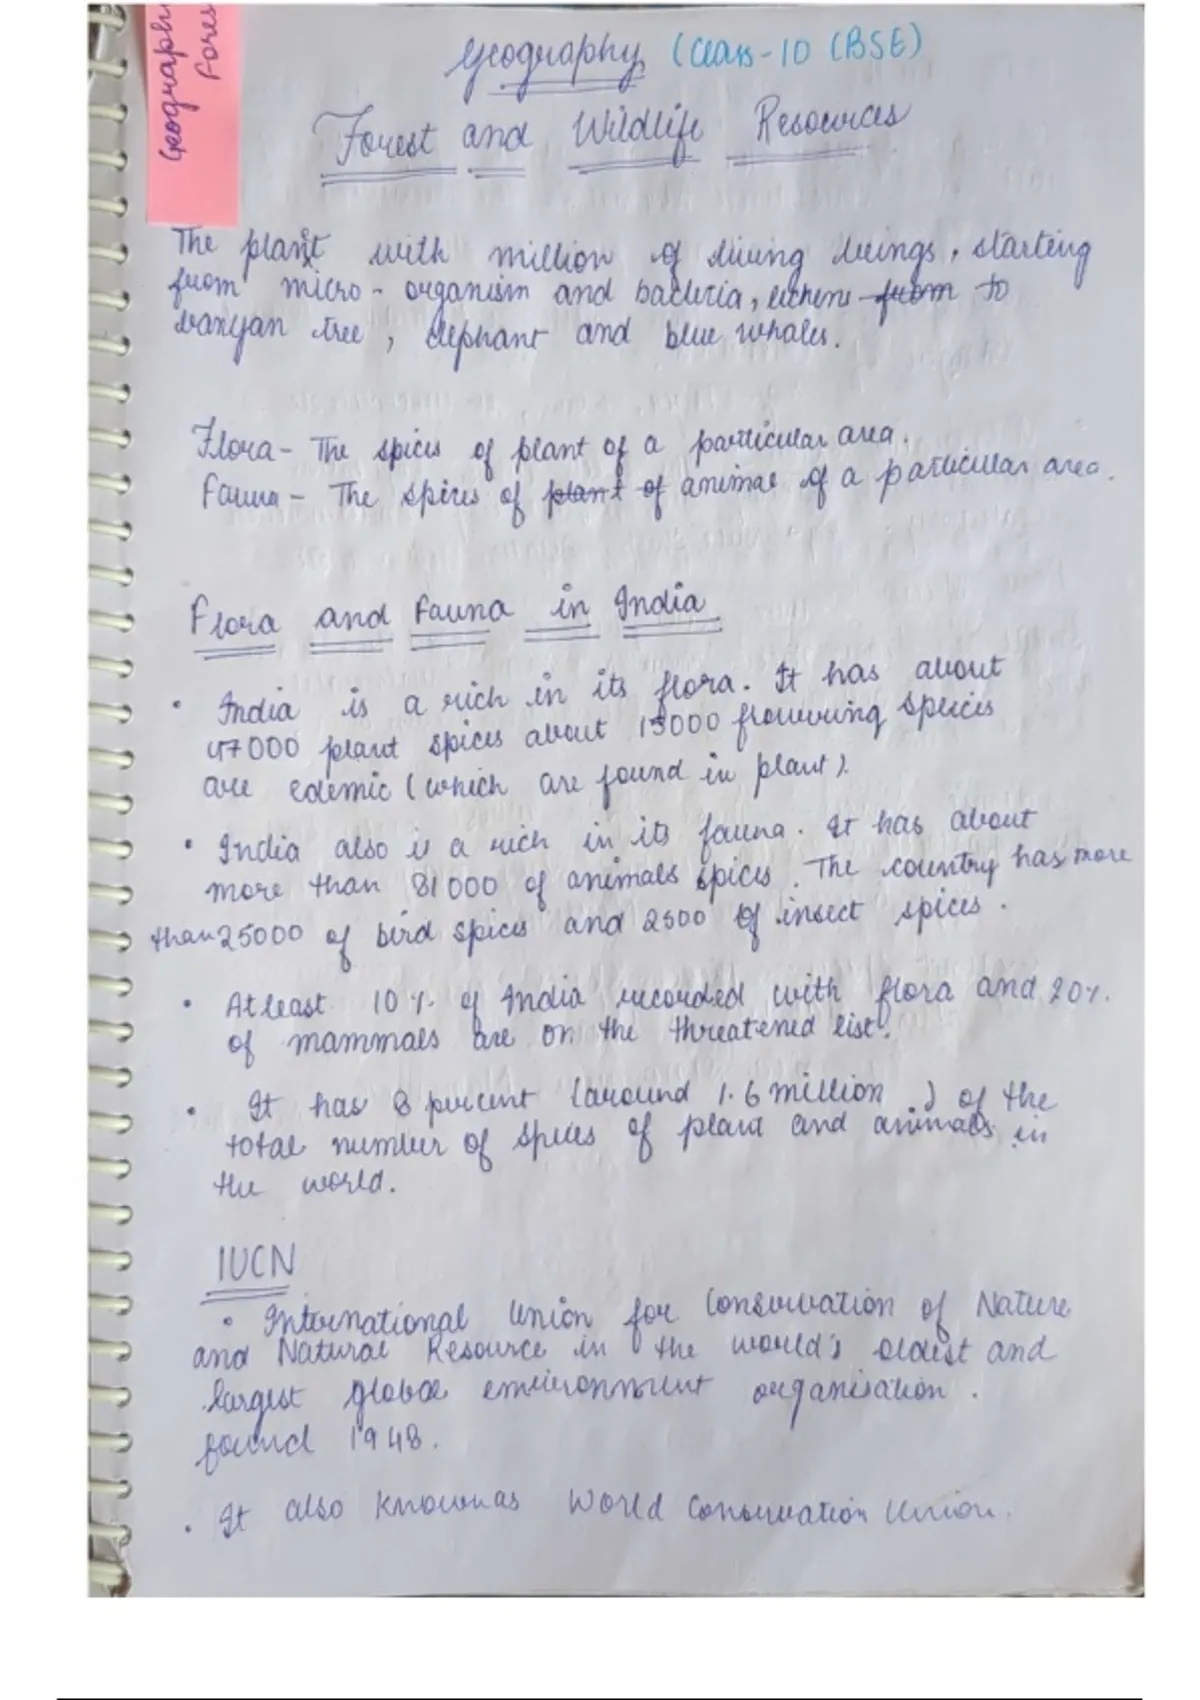 Geography
Fores
Geography (Class-10 CBSE)
Forest and Wildlife Resources
The planet with million of living beings, starting
from micro-organism and bacteria, lichens from to
banyan tree, elephant and blue whales.
Flora - The spices of plant of a particular area.
Fauna - The spices of plant of animal of a particular area.
Flora and Fauna in India
• India is a rich in its flora. It has about
47000 plant spices about 15000 flowering species
are edemic (which are found in plant).
• India also is a rich in its fauna. It has about
more than 81000 of animals spices. The country has more
than 25000 of bird spices and 2500 of insect spices.
• Atleast 10%. of India recorded with flora and 20%.
of mammals are on the threatened list.
• It has 8 percent (around 1.6 million) of the
total number of spices of plant and animals in
the world.
IUCN
• International Union for Conservation of Nature
and Natural Resource in the world's oldest and
largest global environment organisation.
found 1948.
• It also known as World Conservation Union.